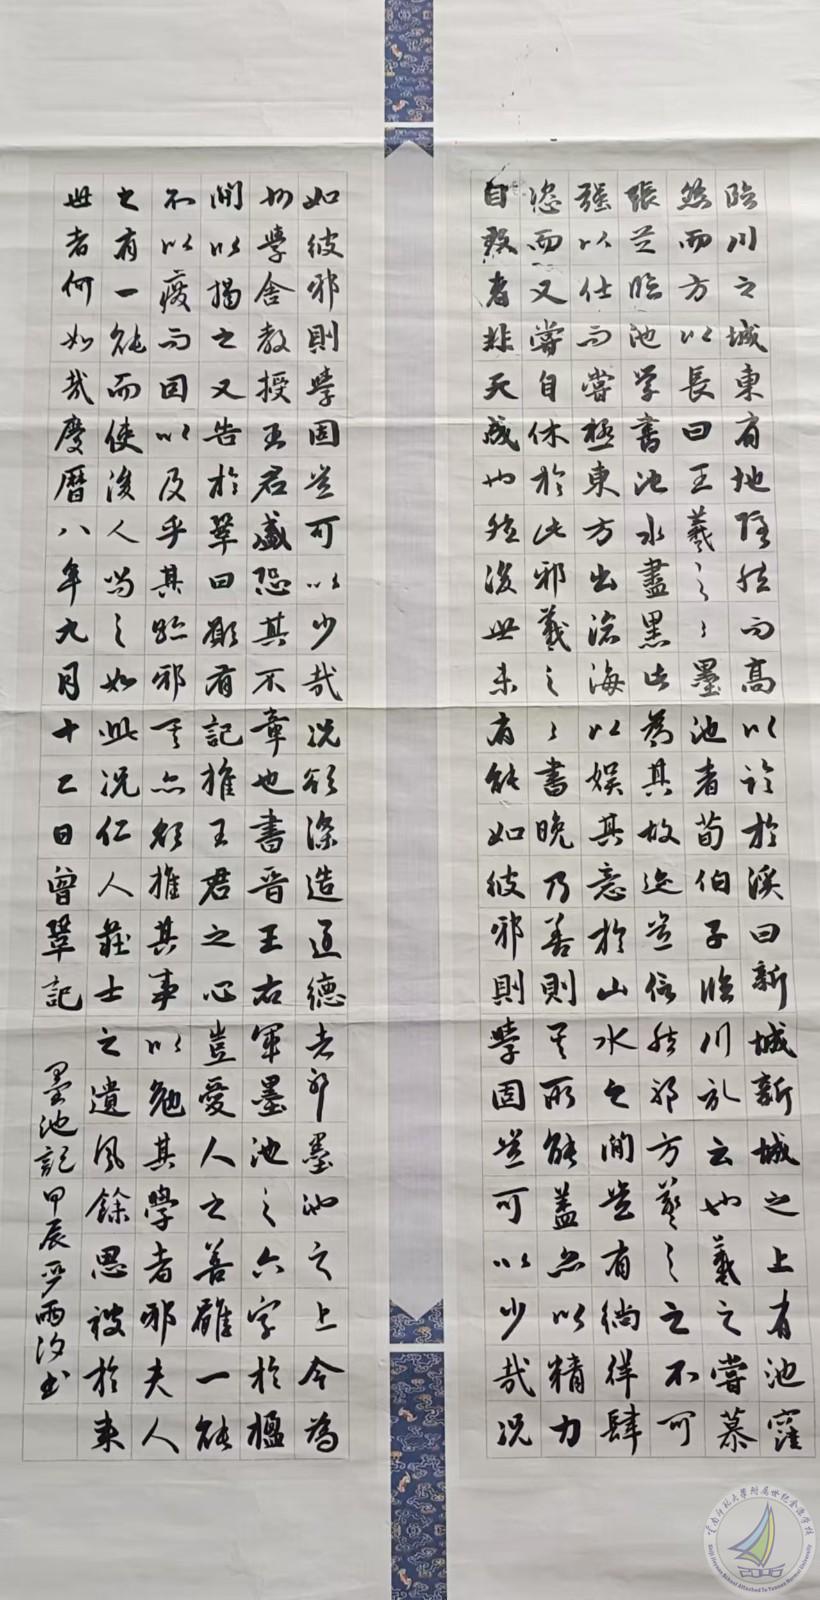 臨川之城東有地隱然而高以臨於溪曰新城新城之上有池窪
然而方以長曰王羲之々墨池者荀伯子臨川記云也羲之嘗慕
張芝臨池学書池水盡黑此為其故迹豈信然邪方羲之之不可
强以仕而嘗極東方出滄海以娱其意於山水之間豈有徜徉肆
恣而又嘗自休於此邪羲之々書晚乃善則其所能蓋亦以精力
自致者非天成也然後世未有能如彼邪則學固豈可以少哉况
如彼邪則學固豈可以少哉况欲深造道德者邪墨池之上今為
州學舍教授王君盛恐其不章也書晋王右軍墨池之六字於楹
間以揭之又告於鞏曰願有記推王君之心豈愛人之善雖一能
不以廢而因以及乎其跡邪其亦欲推其事以勉其學者邪夫人
之有一能而使後人尚之如此况仁人莊士之遺風餘思被於来
世者何如哉慶曆八年九月十二日曾鞏記
墨池記甲辰严雨汐书
雲南師範大學附属世纪金源学校
Shiji Jinyuan School Attached To Yunnan Normal University